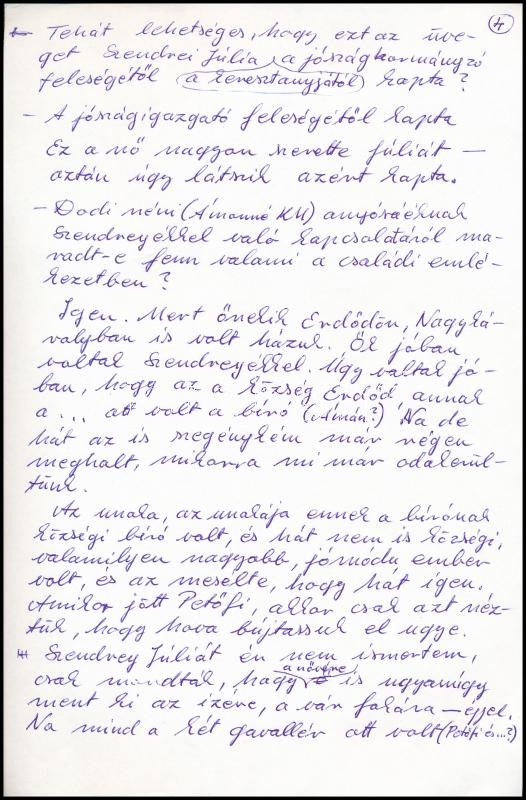 4
– Tehát lehetséges, hogy ezt az üve-
get Szendrei Júlia a jószágkormányzó
feleségétől (a keresztanyjától) kapta?
– A jószágigazgató feleségétől kapta
Ez a nő nagyon szerette Júliát –
aztán úgy látszik azért kapta.
– Dodi néni (Ámanné KM) anyósáéknak
Szendreyékkel való kapcsolatáról ma-
radt-e fenn valami a családi emlé-
kezetben?
Igen. Mert önekik Erdődön, Nagyká-
rolyban is volt házuk. Ők jóban
voltak Szendreyékkel. Úgy voltak jó-
ban, hogy az a község Erdőd, annak
a... ott volt a bíró (Ámán?) Na de
hát az is szegénykém már régen
meghalt, mikorra mi már odakerül-
tünk.
Az unoka, az unokája ennek a bírónak
községi bíró volt, és hát nem is községi,
valamilyen nagyobb, jómódú ember
volt, és az mesélte, hogy hát igen.
Amikor jött Petőfi, akkor csak azt néz-
tük, hogy hova bújtassuk el ugye.
Szendrey Júliát én nem ismertem,
csak mondták, hogy a nővére is ugyanúgy
ment ki az izére, a vár fokára – éjjel.
Na mind a két gavallér ott volt (Petőfi és...?)